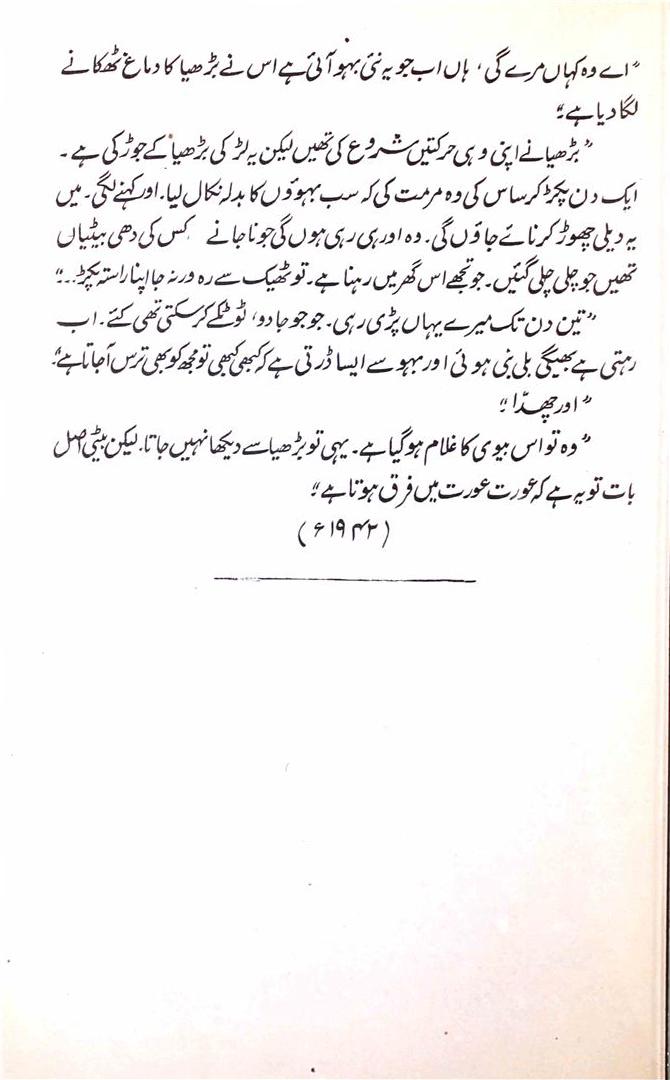 "اے وہ کہاں مرے گی، ہاں اب جو یہ نئی بہو آئی ہے اس نے بڑھیا کا دماغ ٹھکانے
لگا دیا ہے"
"بڑھیا نے اپنی وہی حرکتیں شروع کی تھیں لیکن یہ لڑکی بڑھیا کے جوڑ کی ہے۔
ایک دن پکڑ کر ساس کی وہ مرمت کی کہ سب بہوؤں کا بدلہ نکال لیا۔ اور کہنے لگی۔ میں
یہ دیلی چھوڑ کر نائے جاؤں گی۔ وہ اور ہی رہی ہوں گی جو نا جانے کس کی دھی بیٹیاں
تھیں جو چلی چلی گئیں۔ جو تجھے اس گھر میں رہنا ہے۔ تو ٹھیک سے رہ ورنہ جا اپنا راستہ پکڑ..."
"تین دن تک میرے یہاں پڑی رہی۔ جو جو جادو، ٹوٹکے کر سکتی تھی کئے۔ اب
رہتی ہے بھیگی بلی بنی ہوئی اور بہو سے ایسا ڈرتی ہے کہ کبھی کبھی تو مجھ کو بھی ترس آجاتا ہے"
"اور چھدّا"
"وہ تو اس بیوی کا غلام ہو گیا ہے۔ یہی تو بڑھیا سے دیکھا نہیں جاتا۔ لیکن بیٹی اصل
بات تو یہ ہے کہ عورت عورت میں فرق ہوتا ہے"
(۱۹۴۲ء)